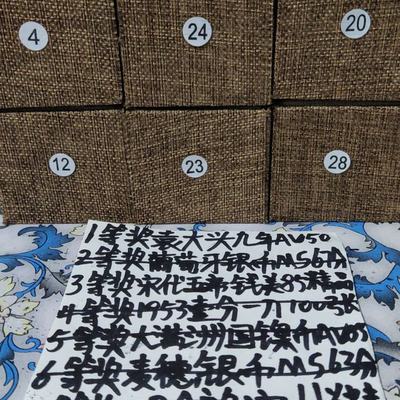 4
24
20
12
23
28
1等奖袁大头九年AU50
2等奖葡萄牙银币MS67分
3等奖宋代五帝钱美85精品
4等奖1953壹分一刀100张
5等奖大满洲国镍币AU05
6等奖麦穗银币MS62分